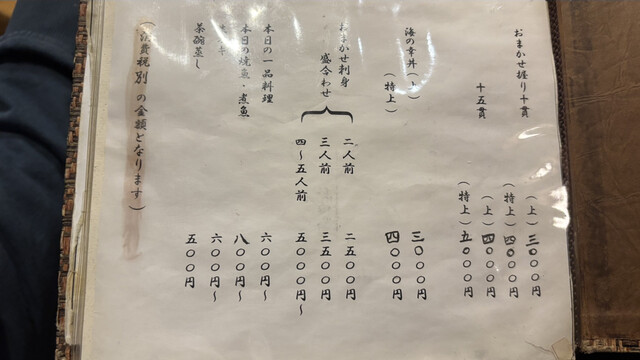 おまかせ握り十貫 （上） 三〇〇〇円
（特上） 四〇〇〇円
十五貫 （上） 四〇〇〇円
（特上） 五〇〇〇円
海の幸丼 （上） 三〇〇〇円
（特上） 四〇〇〇円
おまかせ刺身盛合わせ
二人前 二五〇〇円
三人前 三五〇〇円
四〜五人前 五〇〇〇円〜
本日の一品料理 六〇〇円〜
本日の焼魚・煮魚 八〇〇円〜
六〇〇円〜
茶碗蒸し 五〇〇円
（消費税別の金額となります）